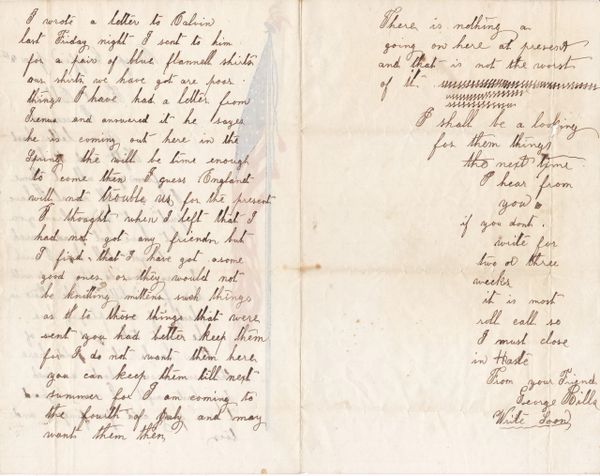 I wrote a letter to Calvin
last Friday night I sent to him
for a pair of blue flannell shirts
our shirts we have got are poor
things I have had a letter from
Irenus and answered it he says
he is coming out here in the
Spring the will be time enough
to come then I guess England
will not trouble us for the present
I thought when I left that I
had not got any friends but
I find that I have got asome
good ones or they would not
be knitting mittens such things
as to those things that were
sent you had better keep them
for I do not want them here
you can keep them till next
summer for I am coming to
the fourth of July and may
want them then
There is nothing a
going on here at present
and that is not the worst
of it.
I shall be a looking
for them things
the next time
I hear from
you
if you dont.
write for
two or three
weeks
it is most
roll call so
I must close
in Haste
From your Friend
George Hills
Write Soon